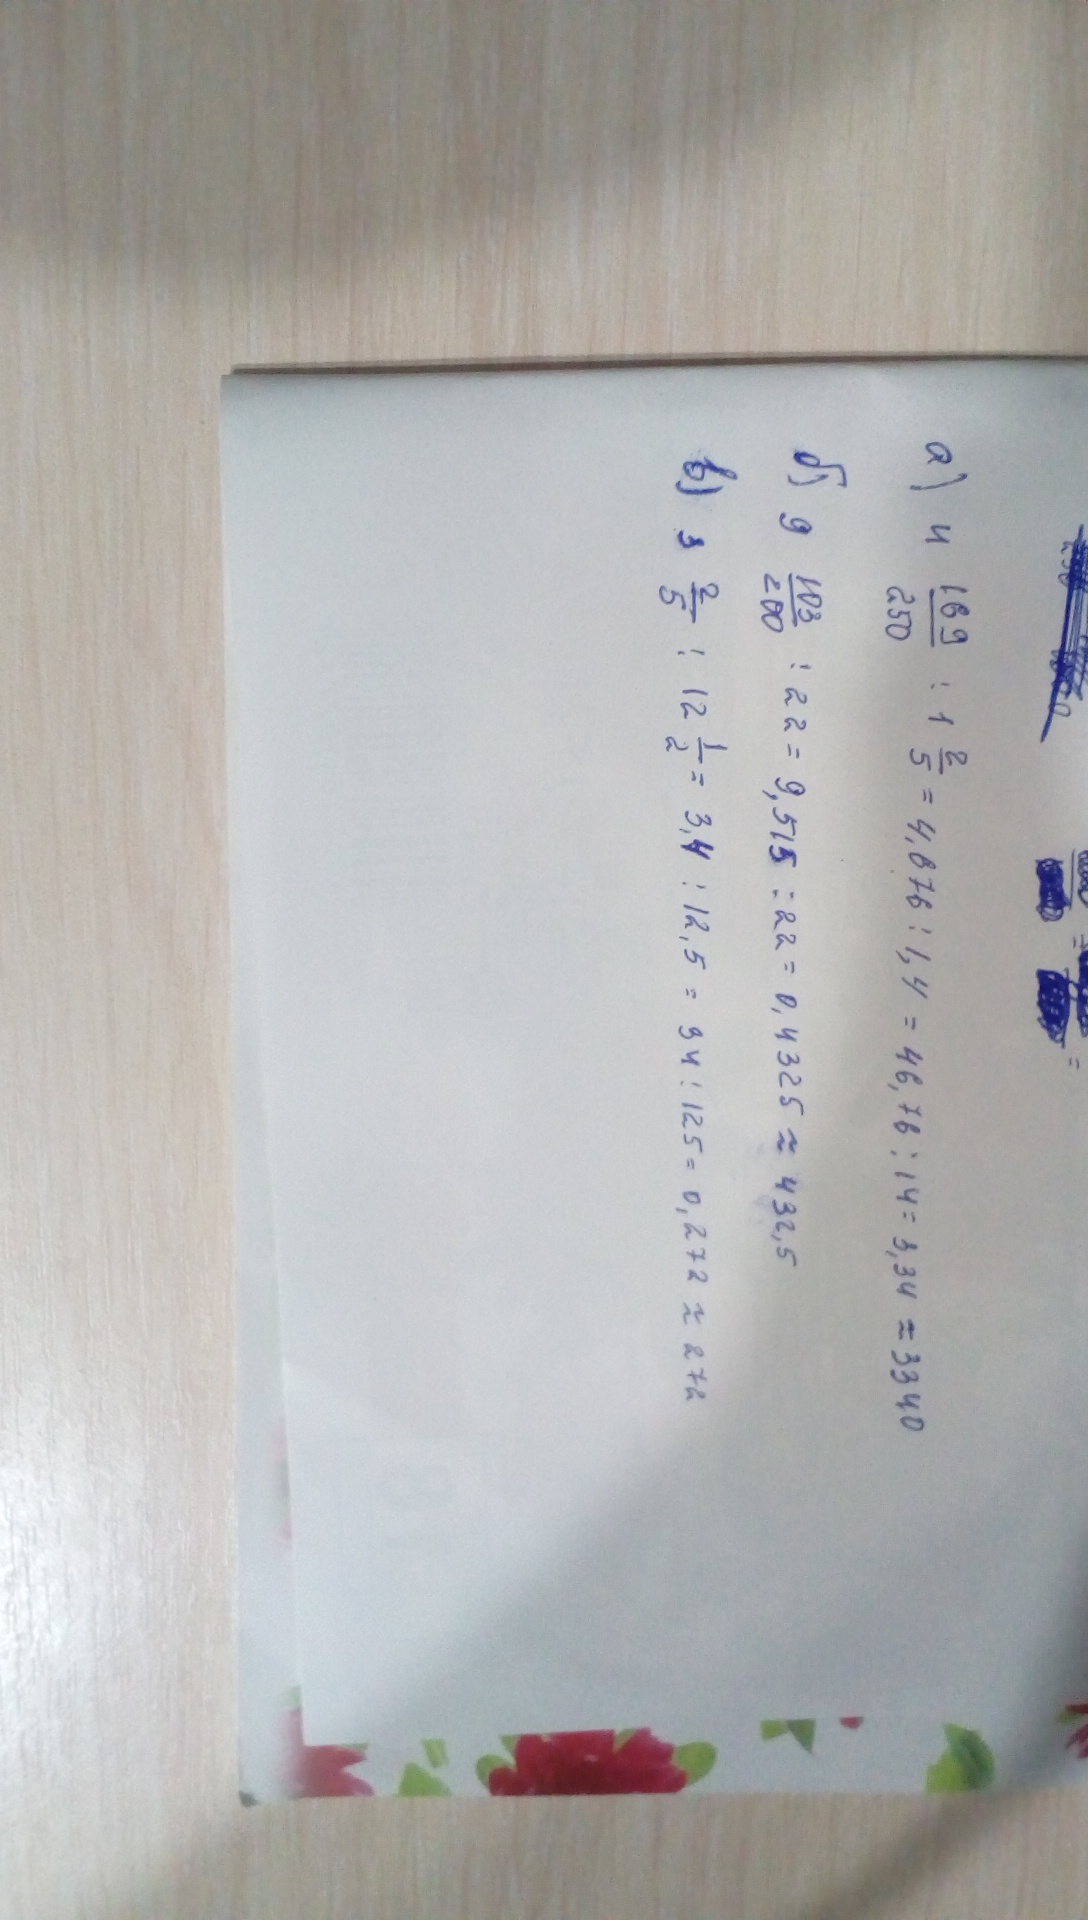 а) 4 169/250 : 1 2/5 = 4,676 : 1,4 = 46,76 : 14 = 3,34 ≈ 3340
б) 9 103/200 : 22 = 9,515 : 22 = 0,4325 ≈ 432,5
в) 3 2/5 : 12 1/2 = 3,4 : 12,5 = 34 : 125 = 0,272 ≈ 272